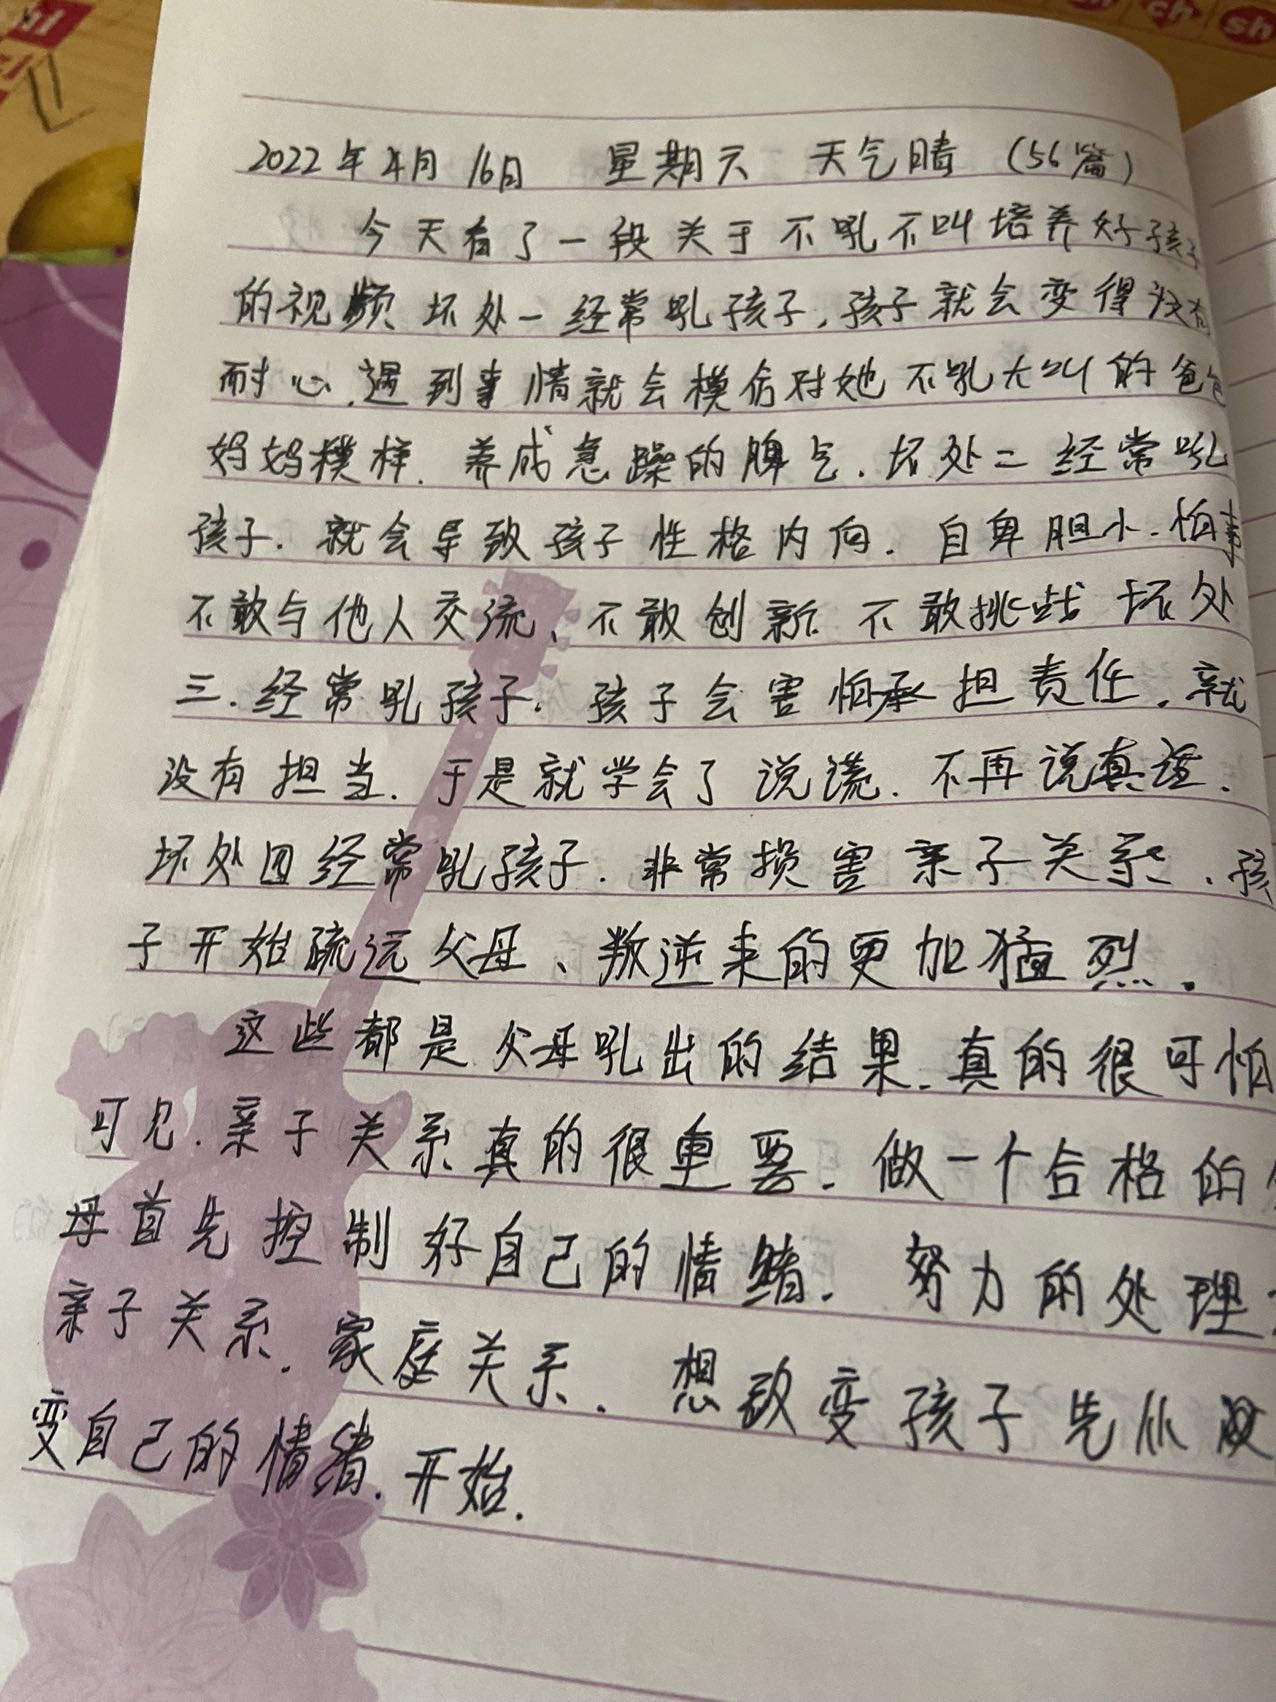 ch sh
2022年4月16日 星期六 天气晴 (56篇)
今天有了一段关于不吼不叫培养好孩子
的视频 坏处一经常吼孩子,孩子就会变得没有
耐心.遇到事情就会模仿对她不吼大叫的爸爸
妈妈模样.养成急躁的脾气.坏处二经常吼
孩子.就会导致孩子性格内向.自卑胆小.怕事
不敢与他人交流、不敢创新 不敢挑战 坏处
三.经常吼孩子.孩子会害怕承担责任.就
没有担当.于是就学会了说谎.不再说真话.
坏处四经常吼孩子.非常损害亲子关系.孩
子开始疏远父母、叛逆来的更加猛烈.
这些都是父母吼出的结果.真的很可怕
可见.亲子关系真的很重要.做一个合格的
母首先控制好自己的情绪.努力的处理
亲子关系.家庭关系.想改变孩子先从改
变自己的情绪.开始.